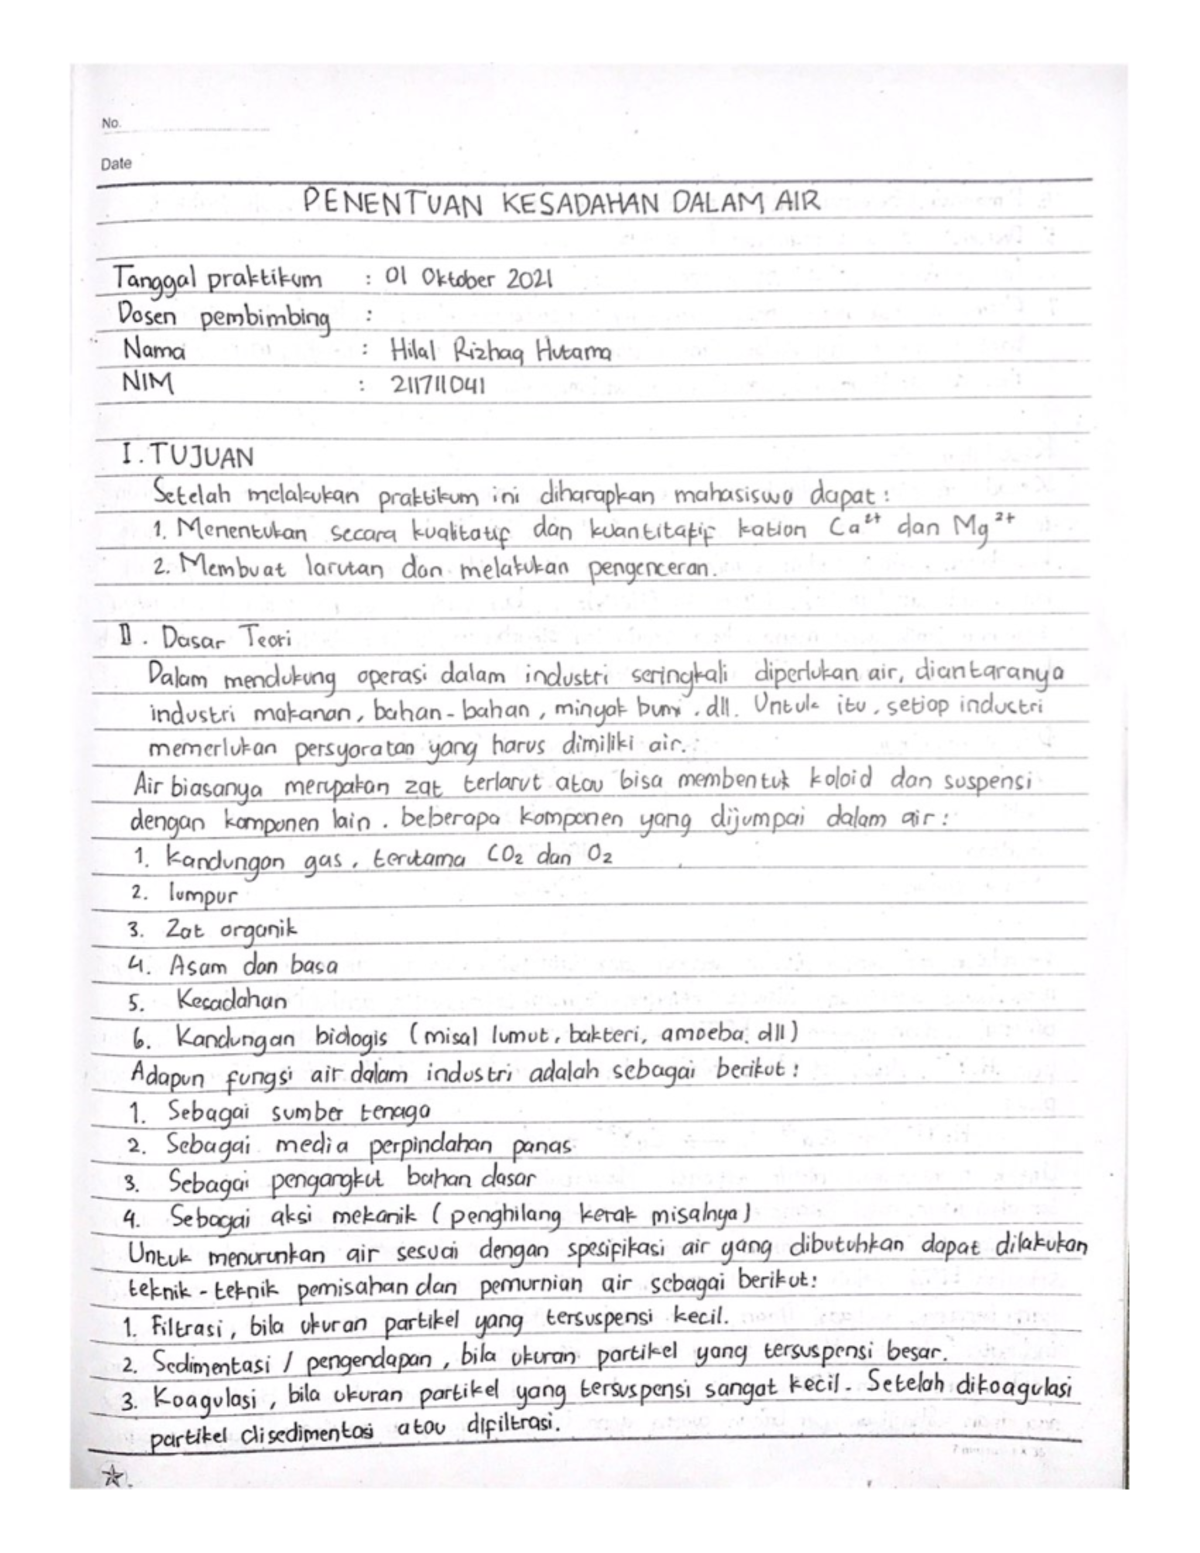 No.
Date
PENENTUAN KESADAHAN DALAM AIR
Tanggal praktikum : 01 Oktober 2021
Dosen pembimbing :
Nama : Hilal Rizhaq Hutama
NIM : 211711041
I. TUJUAN
Setelah melakukan praktikum ini diharapkan mahasiswa dapat :
1. Menentukan secara kualitatif dan kuantitatif kation Ca²⁺ dan Mg²⁺
2. Membuat larutan dan melakukan pengenceran.
II. Dasar Teori
Dalam mendukung operasi dalam industri seringkali diperlukan air, diantaranya
industri makanan, bahan-bahan, minyak bumi, dll. Untuk itu, setiap industri
memerlukan persyaratan yang harus dimiliki air.
Air biasanya merupakan zat terlarut atau bisa membentuk koloid dan suspensi
dengan komponen lain. beberapa komponen yang dijumpai dalam air :
1. Kandungan gas, terutama CO₂ dan O₂
2. lumpur
3. Zat organik
4. Asam dan basa
5. Kesadahan
6. Kandungan biologis (misal lumut, bakteri, amoeba, dll)
Adapun fungsi air dalam industri adalah sebagai berikut :
1. Sebagai sumber tenaga
2. Sebagai media perpindahan panas
3. Sebagai pengangkut bahan dasar
4. Sebagai aksi mekanik (penghilang kerak misalnya)
Untuk menurunkan air sesuai dengan spesipikasi air yang dibutuhkan dapat dilakukan
teknik-teknik pemisahan dan pemurnian air sebagai berikut:
1. Filtrasi, bila ukuran partikel yang tersuspensi kecil.
2. Sedimentasi / pengendapan, bila ukuran partikel yang tersuspensi besar.
3. Koagulasi, bila ukuran partikel yang tersuspensi sangat kecil. Setelah dikoagulasi
partikel disedimentasi atau difiltrasi.